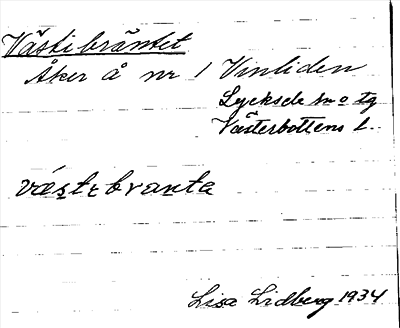 Västibräntet
Åker å nr 1 Vinliden
Lycksele sn o tg
Västerbottens l.
väste branta
Lisa Lidberg 1934